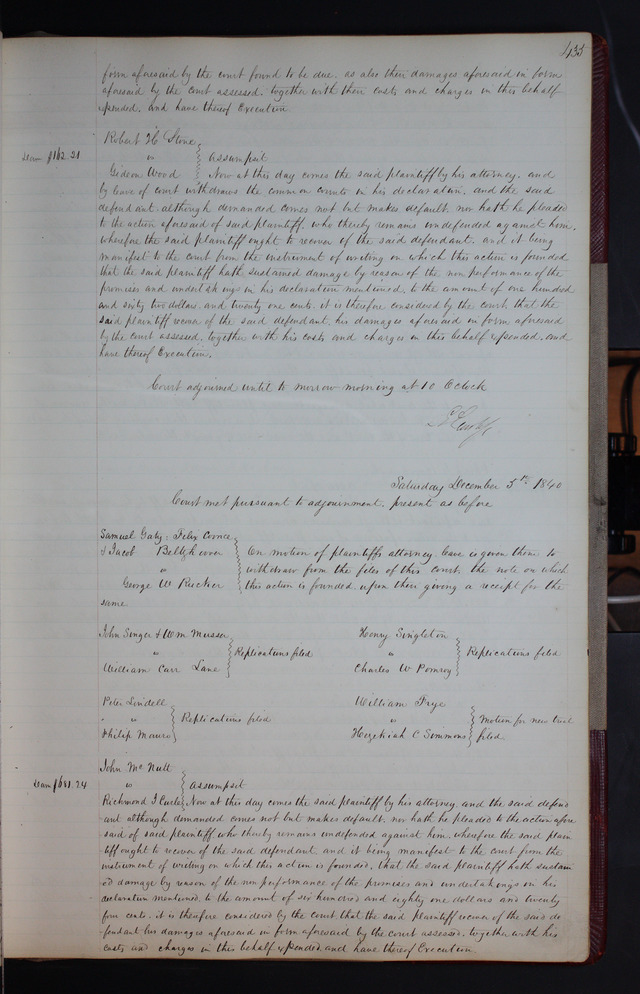 form aforesaid by the court found to be due, as also their damages aforesaid in form
aforesaid by the court assessed, together with their costs and charges in this behalf
expended, and have thereof Execution
Robert H Stone
vs
Assumpsit
Dam $162.21
Gideon Wood
Now at this day comes the said plaintiff by his attorney, and
by leave of court withdraws the common counts in his declaration, and the said
defendant although demanded comes not but makes default, nor hath he pleaded
to the action aforesaid of said plaintiff, who thereby remains undefended against him,
wherefore the said plaintiff ought to recover of the said defendant, and it being
manifest to the court from the instrument of writing on which this action is founded
that the said plaintiff hath sustained damage by reason of the non performance of the
promises and undertakings in his declaration mentioned, to the amount of one hundred
and sixty two dollars and twenty one cents, it is therefore considered by the court, that the
said plaintiff recover of the said defendant, his damages aforesaid in form aforesaid
by the court assessed, together with his costs and charges in this behalf expended, and
have thereof Execution.
Court adjourned until to morrow morning at 10 Oclock
Saturday December 5th 1840
Court met pursuant to adjournment, present as before
Samuel Gaty, Felix Coonce
& Jacob Beltzhoover
vs
George W Rucker
On motion of plaintiffs attorney leave is given them to
withdraw from the files of this court, the note on which
this action is founded upon their giving a receipt for the
same
John Singer & Wm Musser
vs
William Carr Lane
Replications filed
Henry Singleton
vs
Charles W Pomroy
Replications filed
Peter Lindell
vs
Philip Mauro
Replications filed
William Frye
vs
Hezekiah C Simmons
Motion for new trial
filed
John Mc Nutt
vs
Assumpsit
Dam $681.24
Richmond J Curle
Now at this day comes the said plaintiff by his attorney, and the said defend
ant although demanded comes not but makes default, nor hath he pleaded to the action afore
said of said plaintiff who thereby remains undefended against him, wherefore the said plain
tiff ought to recover of the said defendant, and it being manifest to the court from the
instrument of writing on which this action is founded, that the said plaintiff hath sustain
ed damage by reason of the non performance of the promises and undertakings in his
declaration mentioned, to the amount of six hundred and eighty one dollars and twenty
four cents, it is therefore considered by the court that the said plaintiff recover of the said de
fendant his damages aforesaid in form aforesaid by the court assessed, together with his
costs and charges in this behalf expended and have thereof Execution